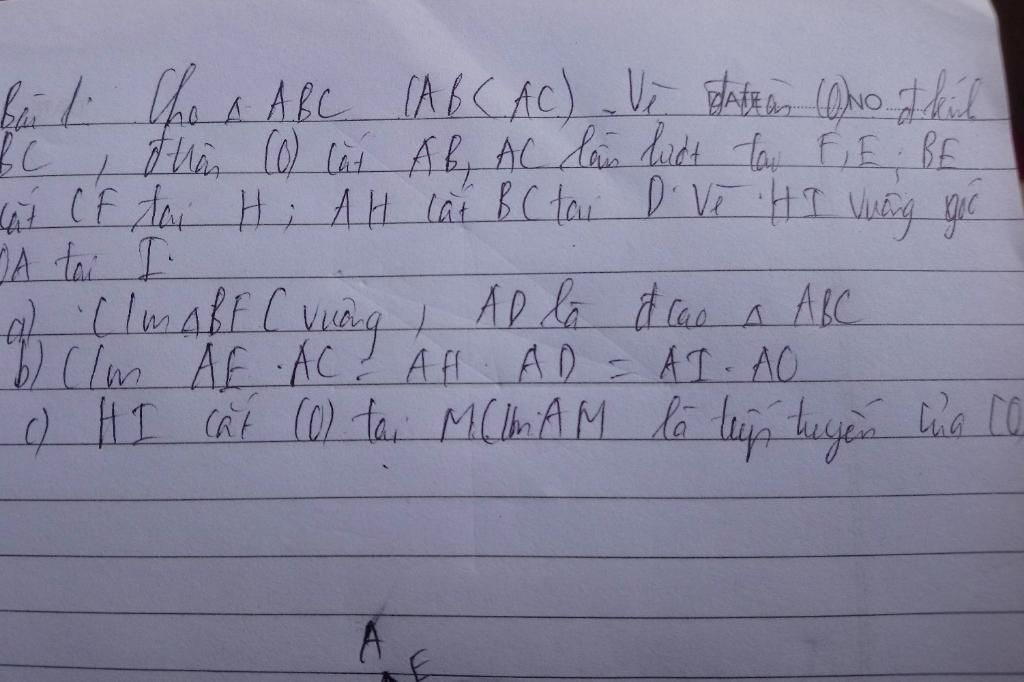 Bài 1: Cho Δ ABC (AB < AC). Vẽ đtròn (O) đkính
BC, đtròn (O) cắt AB, AC lần lượt tại F, E; BE
cắt CF tại H; AH cắt BC tại D. Vẽ HI vuông góc
OA tại I.
a) C/m Δ BFC vuông, AD là đcao Δ ABC
b) C/m AE . AC = AH . AD = AI . AO
c) HI cắt (O) tại M. C/m AM là tiếp tuyến của (O
A
E